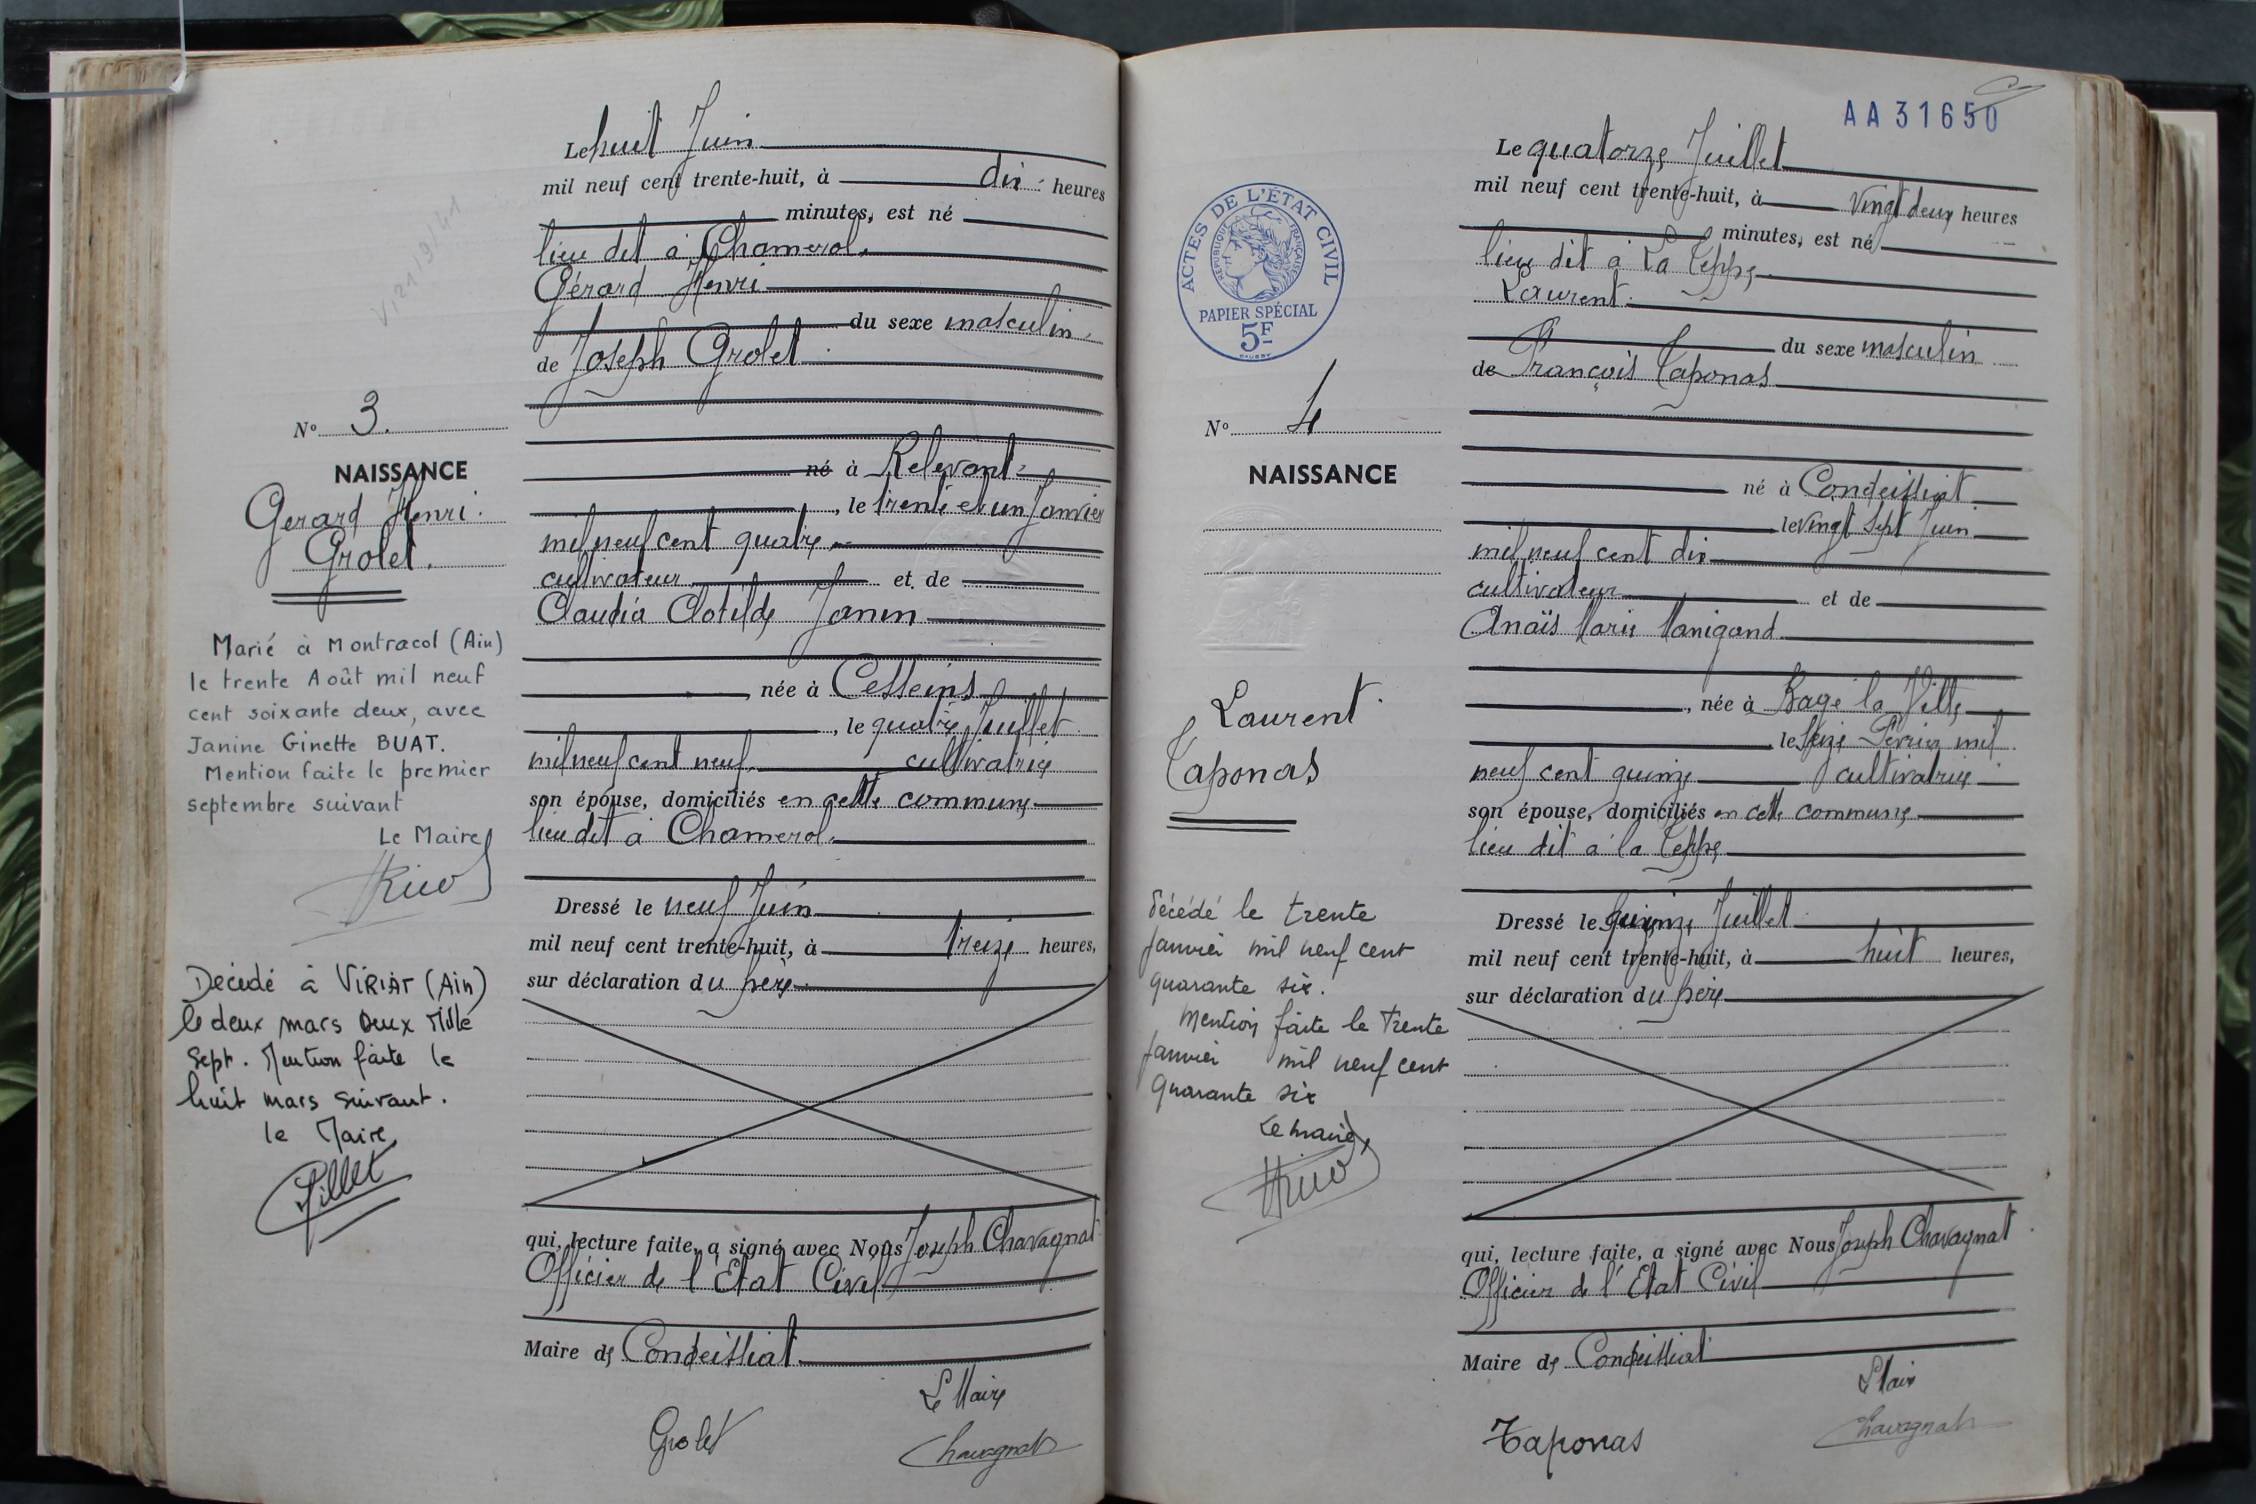 Le huit Juin
mil neuf cent trente-huit, à dix heures
minutes, est né
lieu dit à Chamerol
Gérard Henri
du sexe masculin
de Joseph Grolet
né à Relevant
, le trente et un Janvier
mil neuf cent quatre
cultivateur et de
Claudia Clotilde Janin
, née à Cesseins
, le quatre Juillet
mil neuf cent neuf cultivatrice
son épouse, domiciliés en cette commune
lieu dit à Chamerol
Dressé le neuf Juin
mil neuf cent trente-huit, à treize heures,
sur déclaration du père
qui, lecture faite, a signé avec Nous Joseph Chavagnat
Officier de l'Etat Civil
Maire de Condeissiat
Le Maire
Grolet
Chavagnat
No 3.
NAISSANCE
Gerard Henri.
Grolet.
Marié à Montracol (Ain)
le trente Août mil neuf
cent soixante deux, avec
Janine Ginette BUAT.
Mention faite le premier
septembre suivant
Le Maire
Décédé à VIRIAT (Ain)
le deux mars Deux Mille
sept. Mention faite le
huit mars suivant.
le Maire
AA31650
Le quatorze Juillet
mil neuf cent trente-huit, à vingt deux heures
minutes, est né
lieu dit à La Teppe
Laurent
du sexe masculin
de François Taponas
né à Condeissiat
le vingt sept Juin
mil neuf cent dix
cultivateur et de
Anaïs Marie Manigand
, née à Bagé la Ville
le seize Février mil
neuf cent quinze cultivatrice
son épouse, domiciliés en cette commune
lieu dit à la Teppe
Dressé le quinze Juillet
mil neuf cent trente-huit, à huit heures,
sur déclaration du père
qui, lecture faite, a signé avec Nous Joseph Chavagnat
Officier de l'Etat Civil
Maire de Condeissiat
Le Maire
Taponas
Chavagnat
ACTES DE L'ÉTAT CIVIL
RÉPUBLIQUE FRANÇAISE
PAPIER SPÉCIAL
5F
No 4
NAISSANCE
Laurent
Taponas
Décédé le trente
Janvier mil neuf cent
quarante six.
Mention faite le trente
Janvier mil neuf cent
quarante six
Le maire